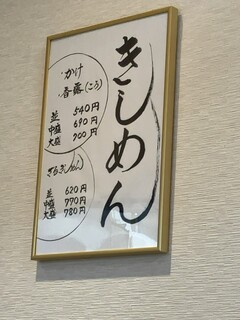 きしめん
・かけ
・香露(こうろ)
並 540円
中盛 690円
大盛 900円
きらきしめん
並 620円
中盛 770円
大盛 780円